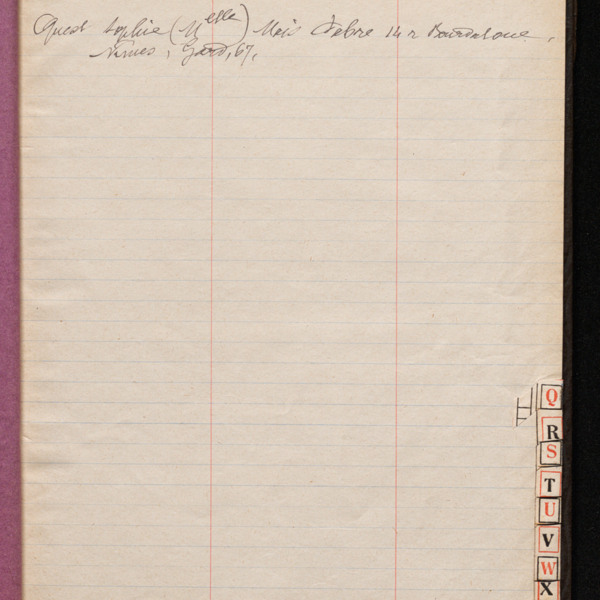 Quest Sophie (Melle) Mais Febre 14 r Bourdaloue,
Nimes, Gard, 67,
Q
R
S
T
U
V
W
X